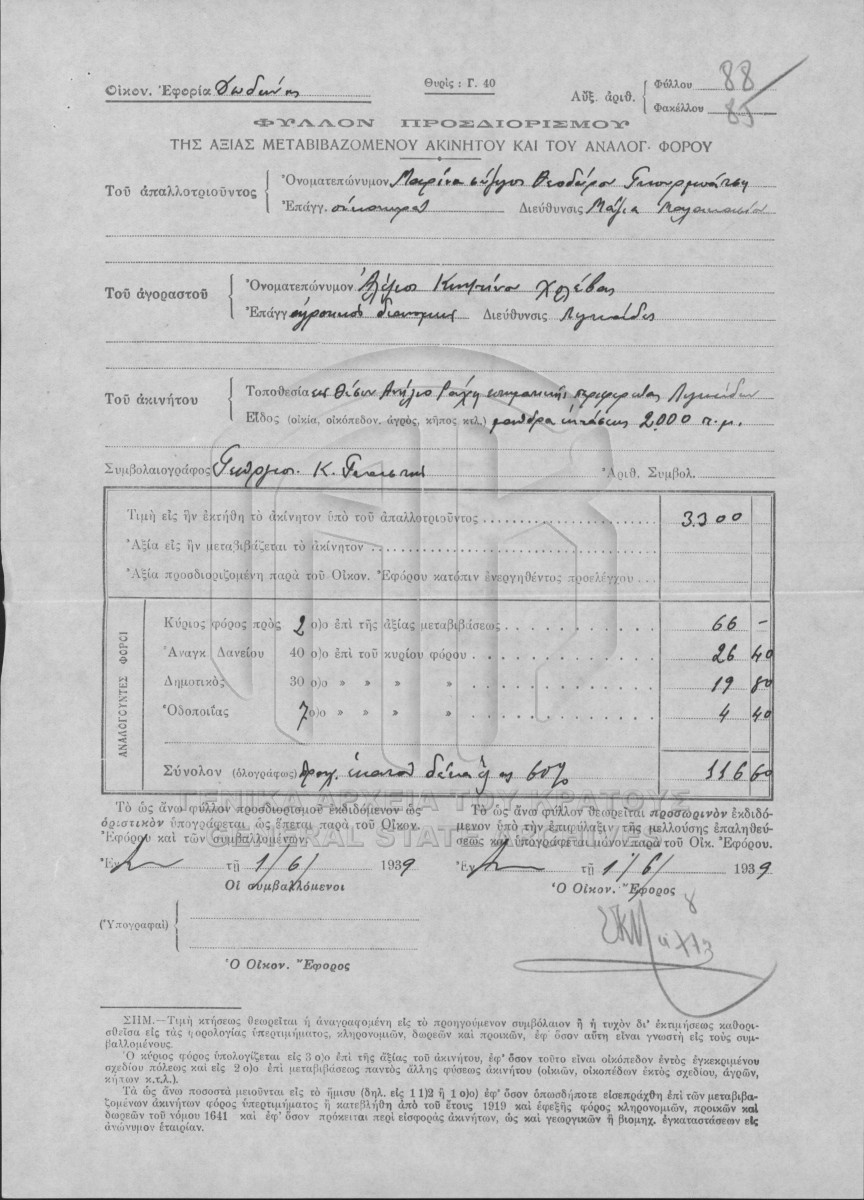 Οἰκον. Ἐφορία Δωδώνης
Θυρὶς : Γ. 40
Αὔξ. ἀριθ. Φύλλου 88
Φακέλλου 85
ΦΥΛΛΟΝ ΠΡΟΣΔΙΟΡΙΣΜΟΥ
ΤΗΣ ΑΞΙΑΣ ΜΕΤΑΒΙΒΑΖΟΜΕΝΟΥ ΑΚΙΝΗΤΟΥ ΚΑΙ ΤΟΥ ΑΝΑΛΟΓ. ΦΟΡΟΥ
Τοῦ ἀπαλλοτριοῦντος
Ὀνοματεπώνυμον Μαρίνα σύζυγος Θεοδώρου
Ἐπάγγ. οἰκοκυρά Διεύθυνσις
Τοῦ ἀγοραστοῦ
Ὀνοματεπώνυμον Ἀλέξιος Χρ. Χολέβας
Ἐπάγγ. ἀγροτικὸς διανομεὺς Διεύθυνσις Λιγκιάδες
Τοῦ ἀκινήτου
Τοποθεσία εἰς θέσιν Ἀνήλιο Ράχη κτηματικῆς περιφερείας Λιγκιάδων
Εἶδος (οἰκία, οἰκόπεδον, ἀγρός, κῆπος κτλ.) μάνδρα ἐκτάσεως 2.000 τ.μ.
Συμβολαιογράφος Γεώργιος Κ.
Ἀριθ. Συμβολ.
Τιμὴ εἰς ἣν ἐκτήθη τὸ ἀκίνητον ὑπὸ τοῦ ἀπαλλοτριοῦντος 3.300
Ἀξία εἰς ἣν μεταβιβάζεται τὸ ἀκίνητον
Ἀξία προσδιοριζομένη παρὰ τοῦ Οἰκον. Ἐφόρου κατόπιν ἐνεργηθέντος προελέγχου
ΑΝΑΛΟΓΟΥΝΤΕΣ ΦΟΡΟΙ
Κύριος φόρος πρὸς 2 ο)ο ἐπὶ τῆς ἀξίας μεταβιβάσεως 66 –
Ἀναγκ Δανείου 40 ο)ο ἐπὶ τοῦ κυρίου φόρου 26 40
Δημοτικὸς 30 ο)ο » » » » 19 80
Ὁδοποιΐας 7 ο)ο » » » » 4 40
Σύνολον (ὁλογράφως) δραχ. ἑκατὸν δέκα ἓξ 60% 116 60
ΓΕΝΙΚΑ ΑΡΧΕΙΑ ΤΟΥ ΚΡΑΤΟΥΣ
GENERAL STATE ARCHIVES
Τὸ ὡς ἄνω φύλλον προσδιορισμοῦ ἐκδιδόμενον ὡς
ὁριστικὸν ὑπογράφεται, ὡς ἕπεται παρὰ τοῦ Οἰκον.
Ἐφόρου καὶ τῶν συμβαλλομένων.
Ἐν τῇ 1/6/ 1939
Οἱ συμβαλλόμενοι
(Ὑπογραφαὶ)
Ὁ Οἰκον. Ἔφορος
Τὸ ὡς ἄνω φύλλον θεωρεῖται προσωρινὸν ἐκδιδό-
μενον ὑπὸ τὴν ἐπιφύλαξιν τῆς μελλούσης ἐπαληθεύ-
σεως καὶ ὑπογράφεται μόνον παρὰ τοῦ Οἰκ. Ἐφόρου.
Ἐν τῇ 1/6/ 1939
Ὁ Οἰκον. Ἔφορος
ΣΗΜ.—Τιμὴ κτήσεως θεωρεῖται ἡ ἀναγραφομένη εἰς τὸ προηγούμενον συμβόλαιον ἢ ἡ τυχὸν δι' ἐκτιμήσεως καθορι-
σθεῖσα εἰς τὰς φορολογίας ὑπερτιμήματος, κληρονομιῶν, δωρεῶν καὶ προικῶν, ἐφ' ὅσον αὕτη εἶναι γνωστὴ εἰς τοὺς συμ-
βαλλομένους.
Ὁ κύριος φόρος ὑπολογίζεται εἰς 3 ο)ο ἐπὶ τῆς ἀξίας τοῦ ἀκινήτου, ἐφ' ὅσον τοῦτο εἶναι οἰκόπεδον ἐντὸς ἐγκεκριμένου
σχεδίου πόλεως καὶ εἰς 2 ο)ο ἐπὶ μεταβιβάσεως παντὸς ἄλλης φύσεως ἀκινήτου (οἰκιῶν, οἰκοπέδων ἐκτὸς σχεδίου, ἀγρῶν,
κήπων κ.τ.λ.).
Τὰ ὡς ἄνω ποσοστὰ μειοῦνται εἰς τὸ ἥμισυ (δηλ. εἰς 1 1)2 ἢ 1 ο)ο) ἐφ' ὅσον ὁπωσδήποτε εἰσεπράχθη ἐπὶ τῶν μεταβιβα-
ζομένων ἀκινήτων φόρος ὑπερτιμήματος ἢ κατεβλήθη ἀπὸ τοῦ ἔτους 1919 καὶ ἐφεξῆς φόρος κληρονομιῶν, προικῶν καὶ
δωρεῶν τοῦ νόμου 1641 καὶ ἐφ' ὅσον πρόκειται περὶ εἰσφορᾶς ἀκινήτων, ὡς καὶ γεωργικῶν ἢ βιομηχ. ἐγκαταστάσεων εἰς
ἀνώνυμον ἑταιρίαν.